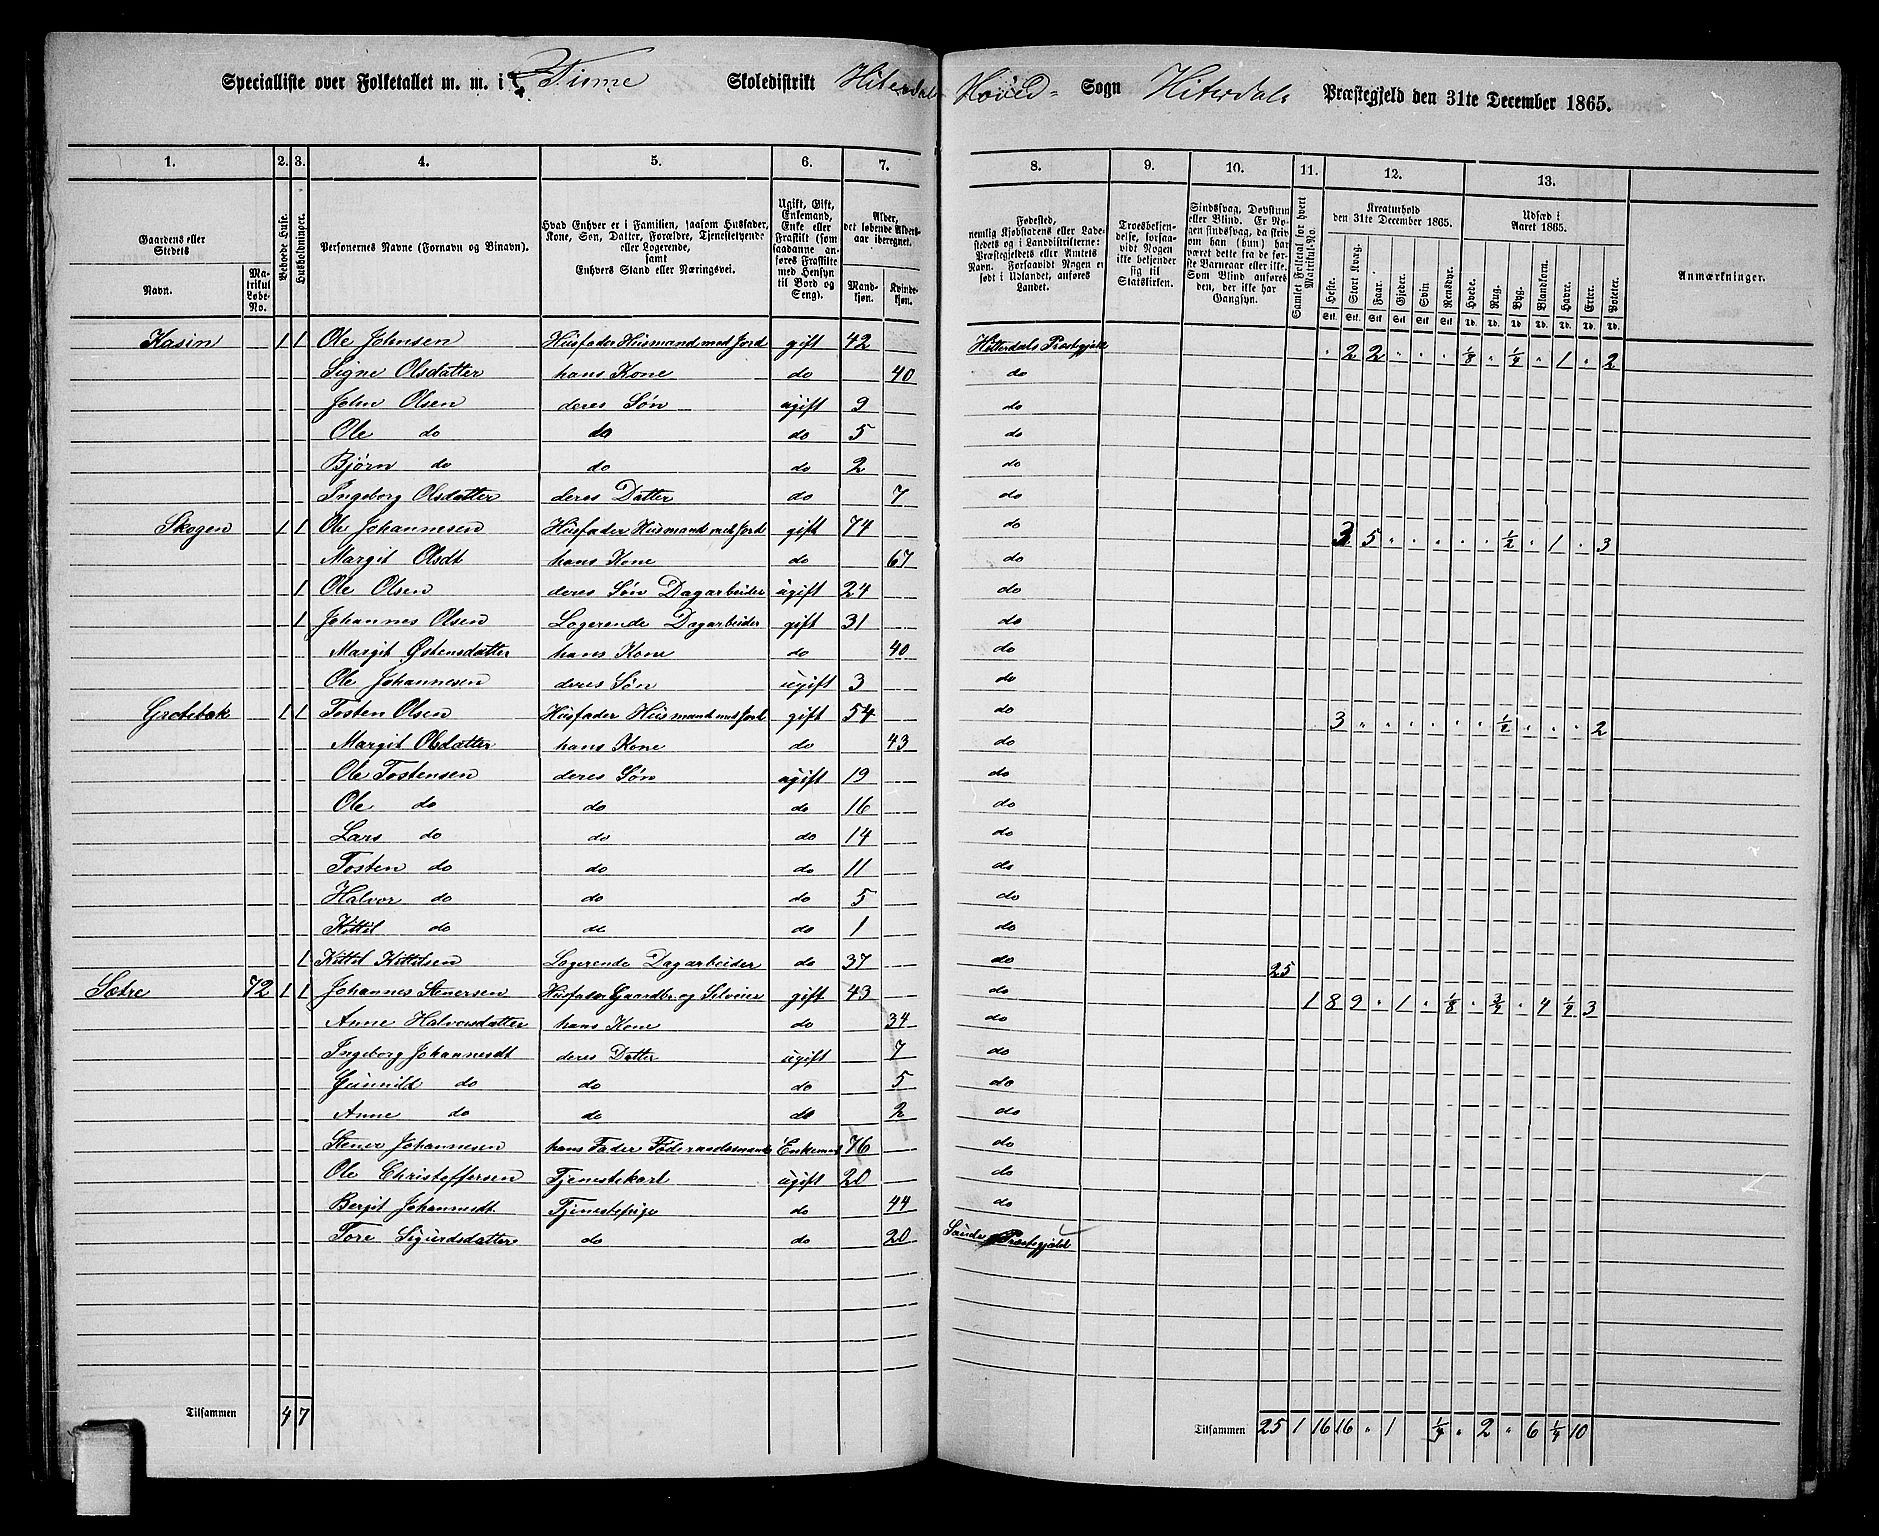 Specialliste over Folketallet m. m. i Tinne Skoledistrikt Hiterdals Hoved- Sogn Hiterdals Præstegjeld den 31te December 1865.
1. 2. 3. 4. 5. 6. 7. 8. 9. 10. 11. 12. 13.
Gaardens eller Stedets
Navn.
Matrikul Løbe-No.
Beboede Huse.
Husholdninger.
Personernes Navne (Fornavn og Binavn).
Hvad Enhver er i Familien, saasom Husfader, Kone, Søn, Datter, Forældre, Tjenestetyende eller Logerende, samt Enhvers Stand eller Næringsvei.
Ugift, Gift, Enkemand, Enke eller Fraskilt (som saadanne anføres Fraskilte med Hensyn til Bord og Seng).
Alder, det løbende Aldersaar iberegnet.
Mandkjøn. Kvindekjøn.
Fødested, nemlig Kjøbstadens eller Ladestedets og i Landdistrikterne: Præstegjeldets eller Amtets Navn. Forsaavidt Nogen er født i Udlandet, anføres Landet.
Troesbekjendelse, forsaavidt Nogen ikke bekjender sig til Statskirken.
Sindssvag, Døvstum eller Blind. Er Nogen sindssvag, da skriv om han (hun) har været det fra de første Barneaar eller ikke. Som Blind anføres den, der ikke har Gangsyn.
Samlet Folketal for hvert Matrikul-No.
Kreaturhold den 31te December 1865.
Heste. Stort Kvæg. Faar. Gjeder. Svin. Rensdyr.
Udsæd i Aaret 1865.
Hvede. Rug. Byg. Blandkorn. Havre. Erter. Poteter.
Anmærkninger.
Kasin 1 1 Ole Johnsen Husfader Husmand med Jord gift 42 Hitterdals Præstegjeld " 2 2 " " " 1/8 " 1/4 " 1 " 2
Signe Olsdatter hans Kone do 40 do
John Olsen deres Søn ugift 9 do
Ole do do do 5 do
Bjørn do do do 2 do
Ingeborg Olsdatter deres Datter do 7 do
Skogen 1 1 Ole Johannesen Husfader Husmand med Jord gift 74 do 3 5 " " " " " 1/2 " 1 " 3
Margit Olsdt hans Kone do 67 do
1 Ole Olsen deres Søn Dagarbeider ugift 24 do
1 Johannes Olsen Logerende Dagarbeider gift 31 do
Margit Østensdatter hans Kone do 40 do
Ole Johannesen deres Søn ugift 3 do
Grotebæk 1 1 Tosten Olsen Husfader Husmand med Jord gift 54 do 3 " " " " " " 1/2 " " " 2
Margit Olsdatter hans Kone do 43 do
Ole Tostensen deres Søn ugift 19 do
Ole do do do 16 do
Lars do do do 14 do
Tosten do do do 11 do
Halvor do do do 5 do
Kittil do do do 1 do
1 Kittil Kittilsen Logerende Dagarbeider do 37 do 25
Sætre 72 1 1 Johannes Stenersen Husfader Gaardbr. og Selveier gift 43 do 1 8 9 " 1 " 1/8 " 3/4 " 4 1/2 3
Anne Halvorsdatter hans Kone do 34 do
Ingeborg Johannesdt deres Datter ugift 7 do
Gunnild do do do 5 do
Anne do do do 2 do
Stener Johannesen hans Fader Føderaadsmand Enkemand 76 do
Ole Christoffersen Tjenestekarl ugift 20 do
Bergit Johannesdt Tjenestepige do 44 do
Tore Sigurdsdatter do do 20 Saude Præstegjeld
Tilsammen 4 7 Tilsammen 25 1 16 16 " 1 1/4 " 2 " 6 1/4 10